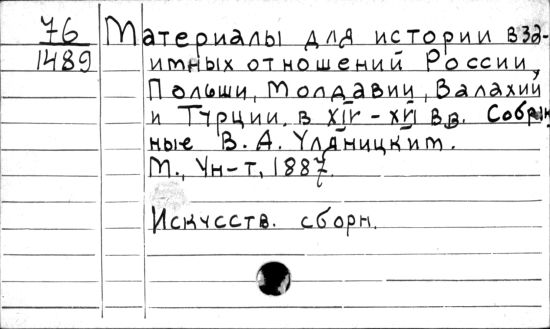 76
1489
Материалы для истории вза-
имных отношений России,
Польши, Молдавии, Валахий
и Турции. в XIV - XVI вв. Собран
ные В. А. Уляницким.
М., Ун-т, 1887.
Искусств. сборн.